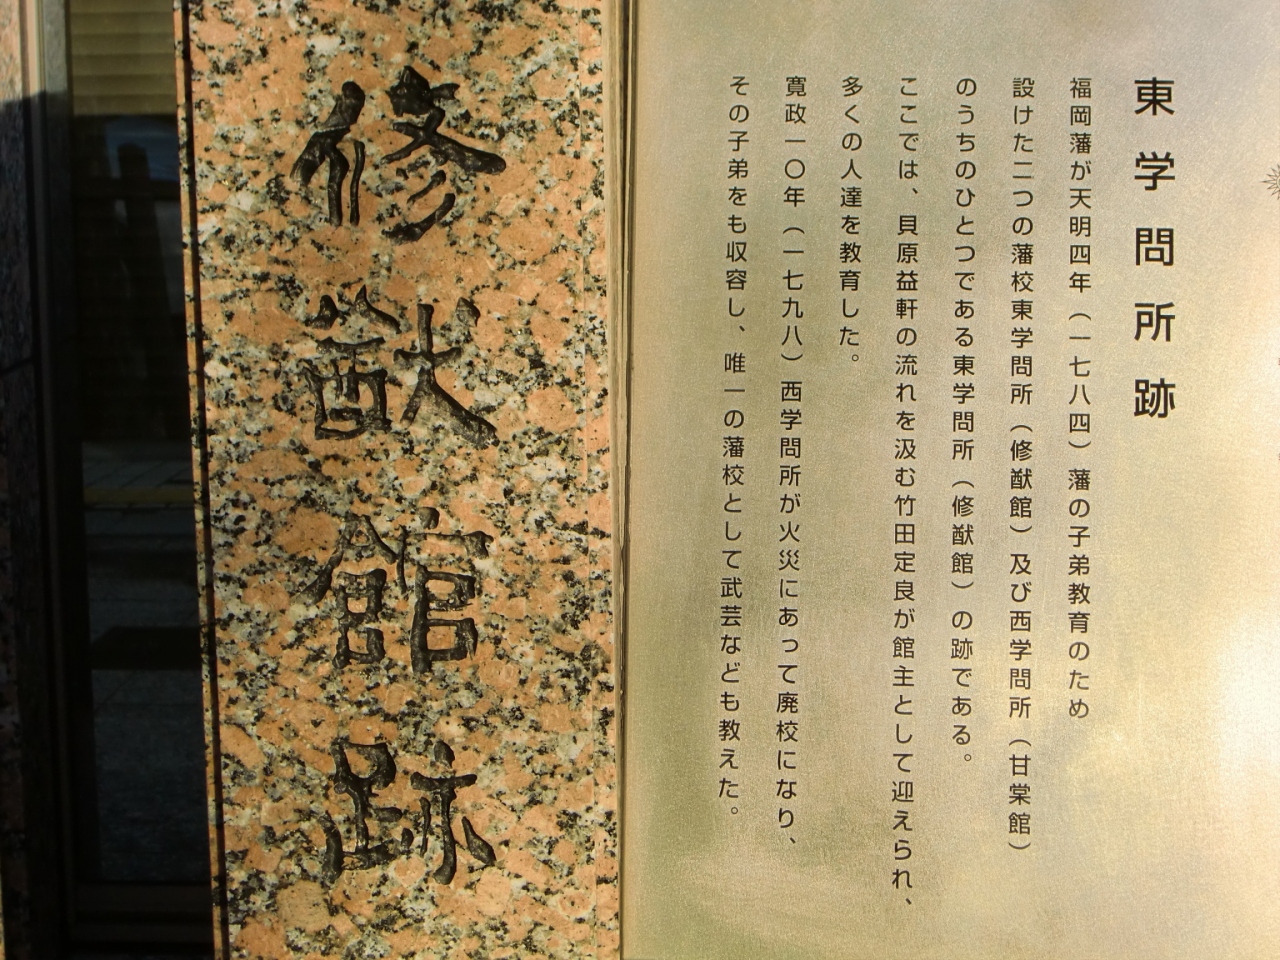 東学問所跡
福岡藩が天明四年（一七八四）藩の子弟教育のため
設けた二つの藩校東学問所（修猷館）及び西学問所（甘棠館）
のうちのひとつである東学問所（修猷館）の跡である。
ここでは、貝原益軒の流れを汲む竹田定良が館主として迎えられ、
多くの人達を教育した。
寛政一〇年（一七九八）西学問所が火災にあって廃校になり、
その子弟をも収容し、唯一の藩校として武芸なども教えた。
修猷館跡